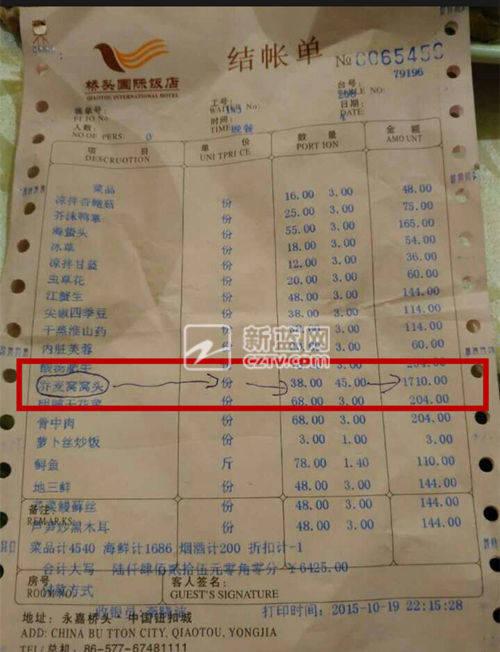 桥头国际饭店
QIAOTOU INTERNATIONAL HOTEL
结帐单
№ 0065450
79196
账单号:
工号:
台号:
人数
NO OF PERS: 0
时间:
TIME: 晚餐
日期:
项目 单价 数量 金额
DESCRUOTION UNI TPRI CE PORT ION AMO UNT
菜品
凉拌杏鲍菇 份 16.00 3.00 48.00
芥沫鸭掌 份 25.00 3.00 75.00
海蜇头 份 55.00 3.00 165.00
冰草 份 18.00 3.00 54.00
凉拌甘蓝 份 12.00 3.00 36.00
虫草花 份 20.00 3.00 60.00
江蟹生 份 48.00 3.00 144.00
尖椒四季豆 份 38.00 3.00 114.00
干蒸淮山药 份 38.00 3.00 114.00
内脏芙蓉 份 3.00 60.00
新蓝网
cztv.com
荞麦窝窝头 份 38.00 45.00 1710.00
干花菜 份 68.00 3.00 204.00
骨中肉 份 68.00 3.00 204.00
萝卜丝炒饭 份 3.00 1.00 3.00
鲜鱼 斤 78.00 1.40 110.00
地三鲜 份 48.00 3.00 144.00
菜鳗鲞丝 份 48.00 3.00 144.00
炒黑木耳 份 48.00 3.00 144.00
备注:
REMARKS
菜品计4540 海鲜计1686 烟酒计200 折扣计-1
合计大写 陆仟肆佰贰拾伍元零角零分 ¥6425.00
房号
ROOM NO.
客人签名:
GUEST'S SIGNATURE
收银员: 打印时间:2015-10-19 22:15:28
地址: 永嘉桥头·中国钮扣城
ADD: CHINA BU TTON CITY, QIAOTOU, YONGJIA
TEL/总机: 86-577-67481111